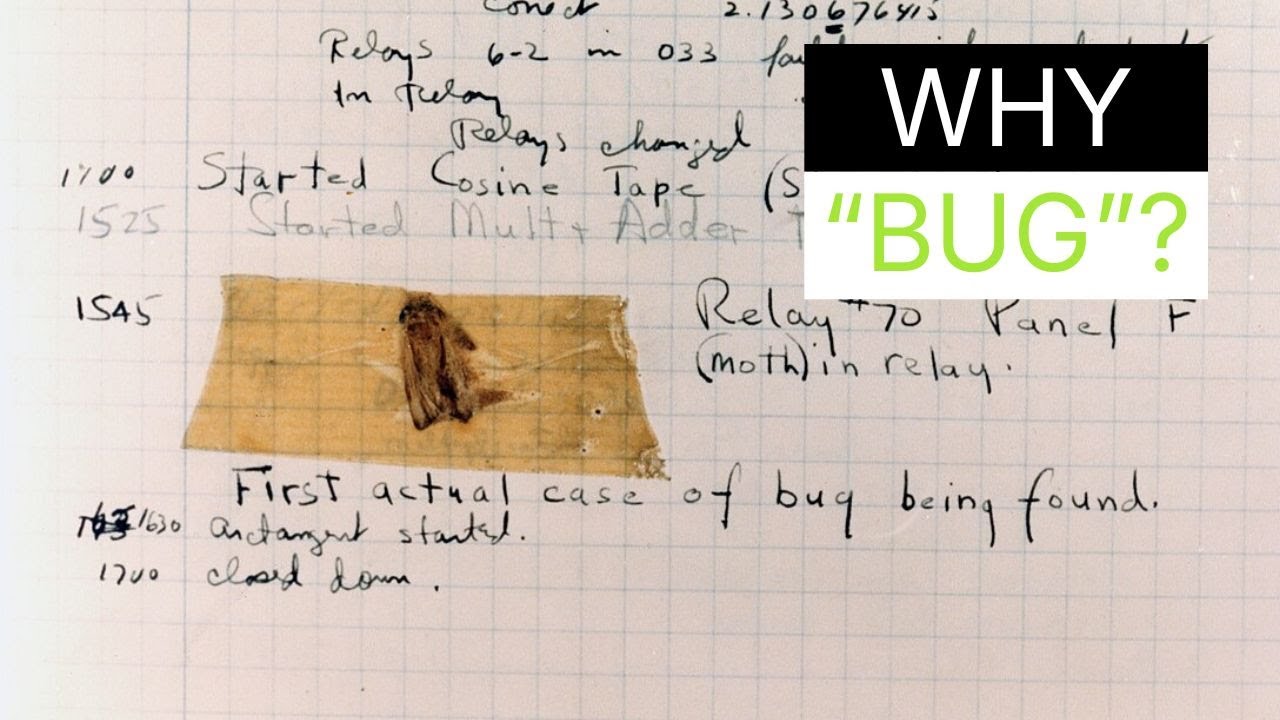 correct 2.130676415
Relays 6-2 in 033
In Relay
Relays changed
WHY
"BUG"?
1100 Started Cosine Tape (S
1525 Started Mult+ Adder T
1545 Relay #70 Panel F
(moth) in relay.
First actual case of bug being found.
1630 arctangent started.
1700 closed down.